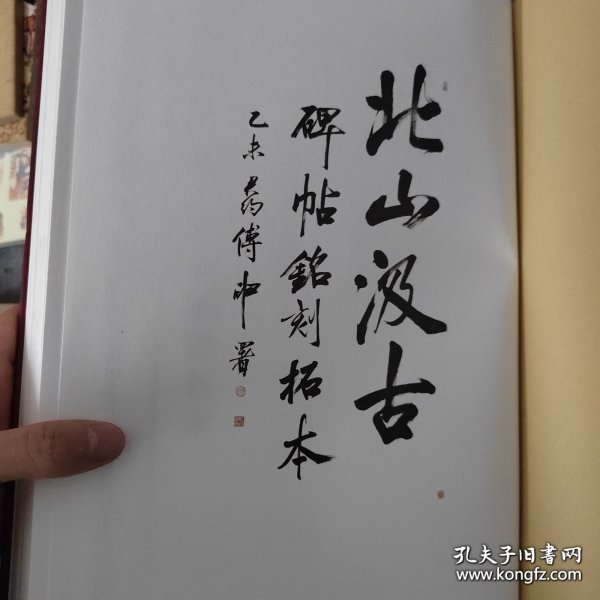 北山汲古
碑帖銘刻拓本
乙未 傅申署
孔夫子旧书网
www.kongfz.com